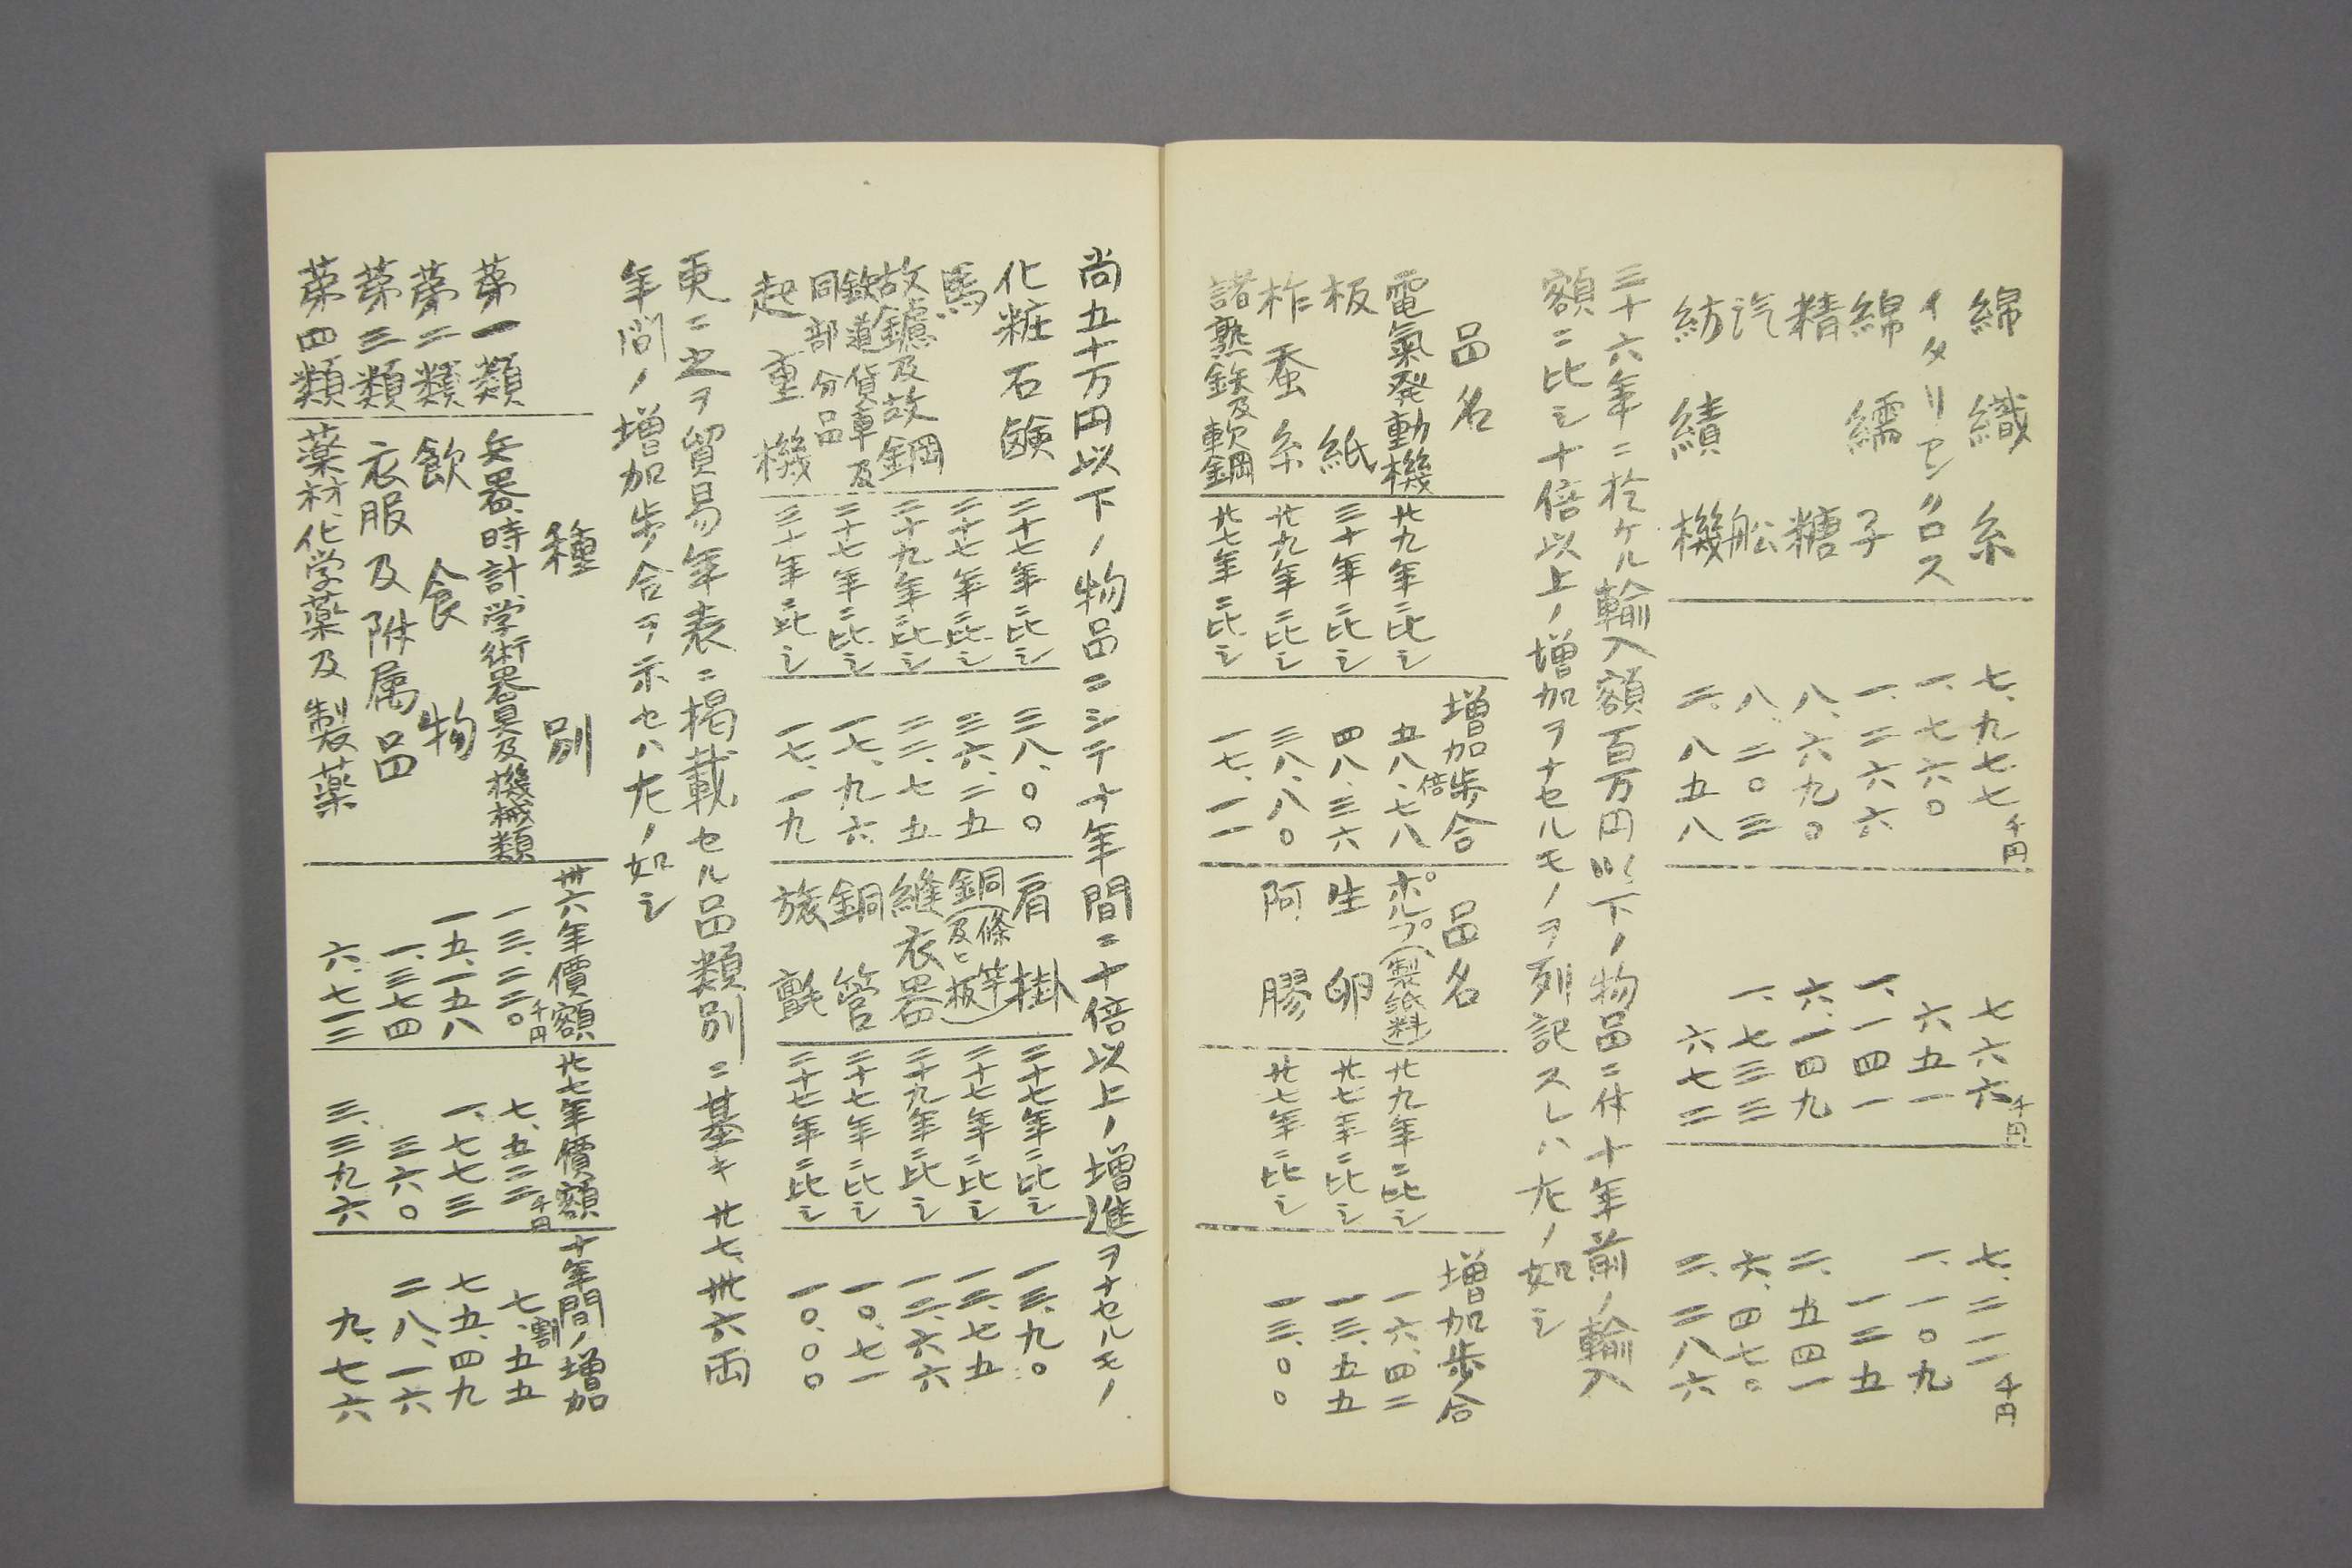 綿織糸 七、九七七千円 七六六千円 七、二一一千円
イタリセンクロス 一、七六〇 六五一 一、一〇九
綿繻子 一、二六六 一、一四一 一二五
精糖 八、六九〇 六、一四九 二、五四一
汽舩 八、二〇三 一、七三三 六、四七〇
紡績機 二、八五八 六七二 二、二八六
三十六年ニ於ケル輸入額百万円以下ノ物品ニ付十年前ノ輸入
額ニ比シ十倍以上ノ増加ヲナセルモノヲ列記スレハ左ノ如シ
品名 増加歩合 品名 増加歩合
電氣発動機 廿九年ニ比シ 五八、七八倍 ポルプ(製紙料) 廿九年ニ比シ 一六、四二
板紙 三十年ニ比シ 四八、三六 生卵 廿七年ニ比シ 一三、五五
柞蚕糸 廿九年ニ比シ 三八、八〇 阿膠 廿七年ニ比シ 一三、〇〇
諸熟鉄及軟鋼 廿七年ニ比シ 一七、一一
尚五十万円以下ノ物品ニシテ十年間ニ十倍以上ノ増進ヲナセルモノ
化粧石鹸 二十七年ニ比シ 三八、〇〇 肩掛 二十七年ニ比シ 一三、九〇
馬 二十七年ニ比シ 三六、二五 銅(條竿及ヒ板) 二十七年ニ比シ 一三、七五
故鑢及故鋼 二十九年ニ比シ 二二、七五 維衣器 二十九年ニ比シ 一二、六六
鉄道貨車及同部分品 二十七年ニ比シ 一七、九六 銅管 二十七年ニ比シ 一〇、七一
起重機 三十年ニ比シ 一七、一九 旅氈 二十七年ニ比シ 一〇、〇〇
更ニ之ヲ貿易年表ニ掲載セル品類別ニ基キ廿七、卅六両
年間ノ増加歩合ヲ示セハ左ノ如シ
種別 卅六年價額 廿七年價額 十年間ノ増加
第一類 兵器、時計、学術器具及機械類 一三、二二〇千円 七、五三二千円 七、五五割
第二類 飲食物 一五、一五八 一、七七三 七五、四九
第三類 衣服及附属品 一、三七四 三六〇 二八、一六
第四類 薬材化学薬及製薬 六、七一三 三、三九六 九、七六